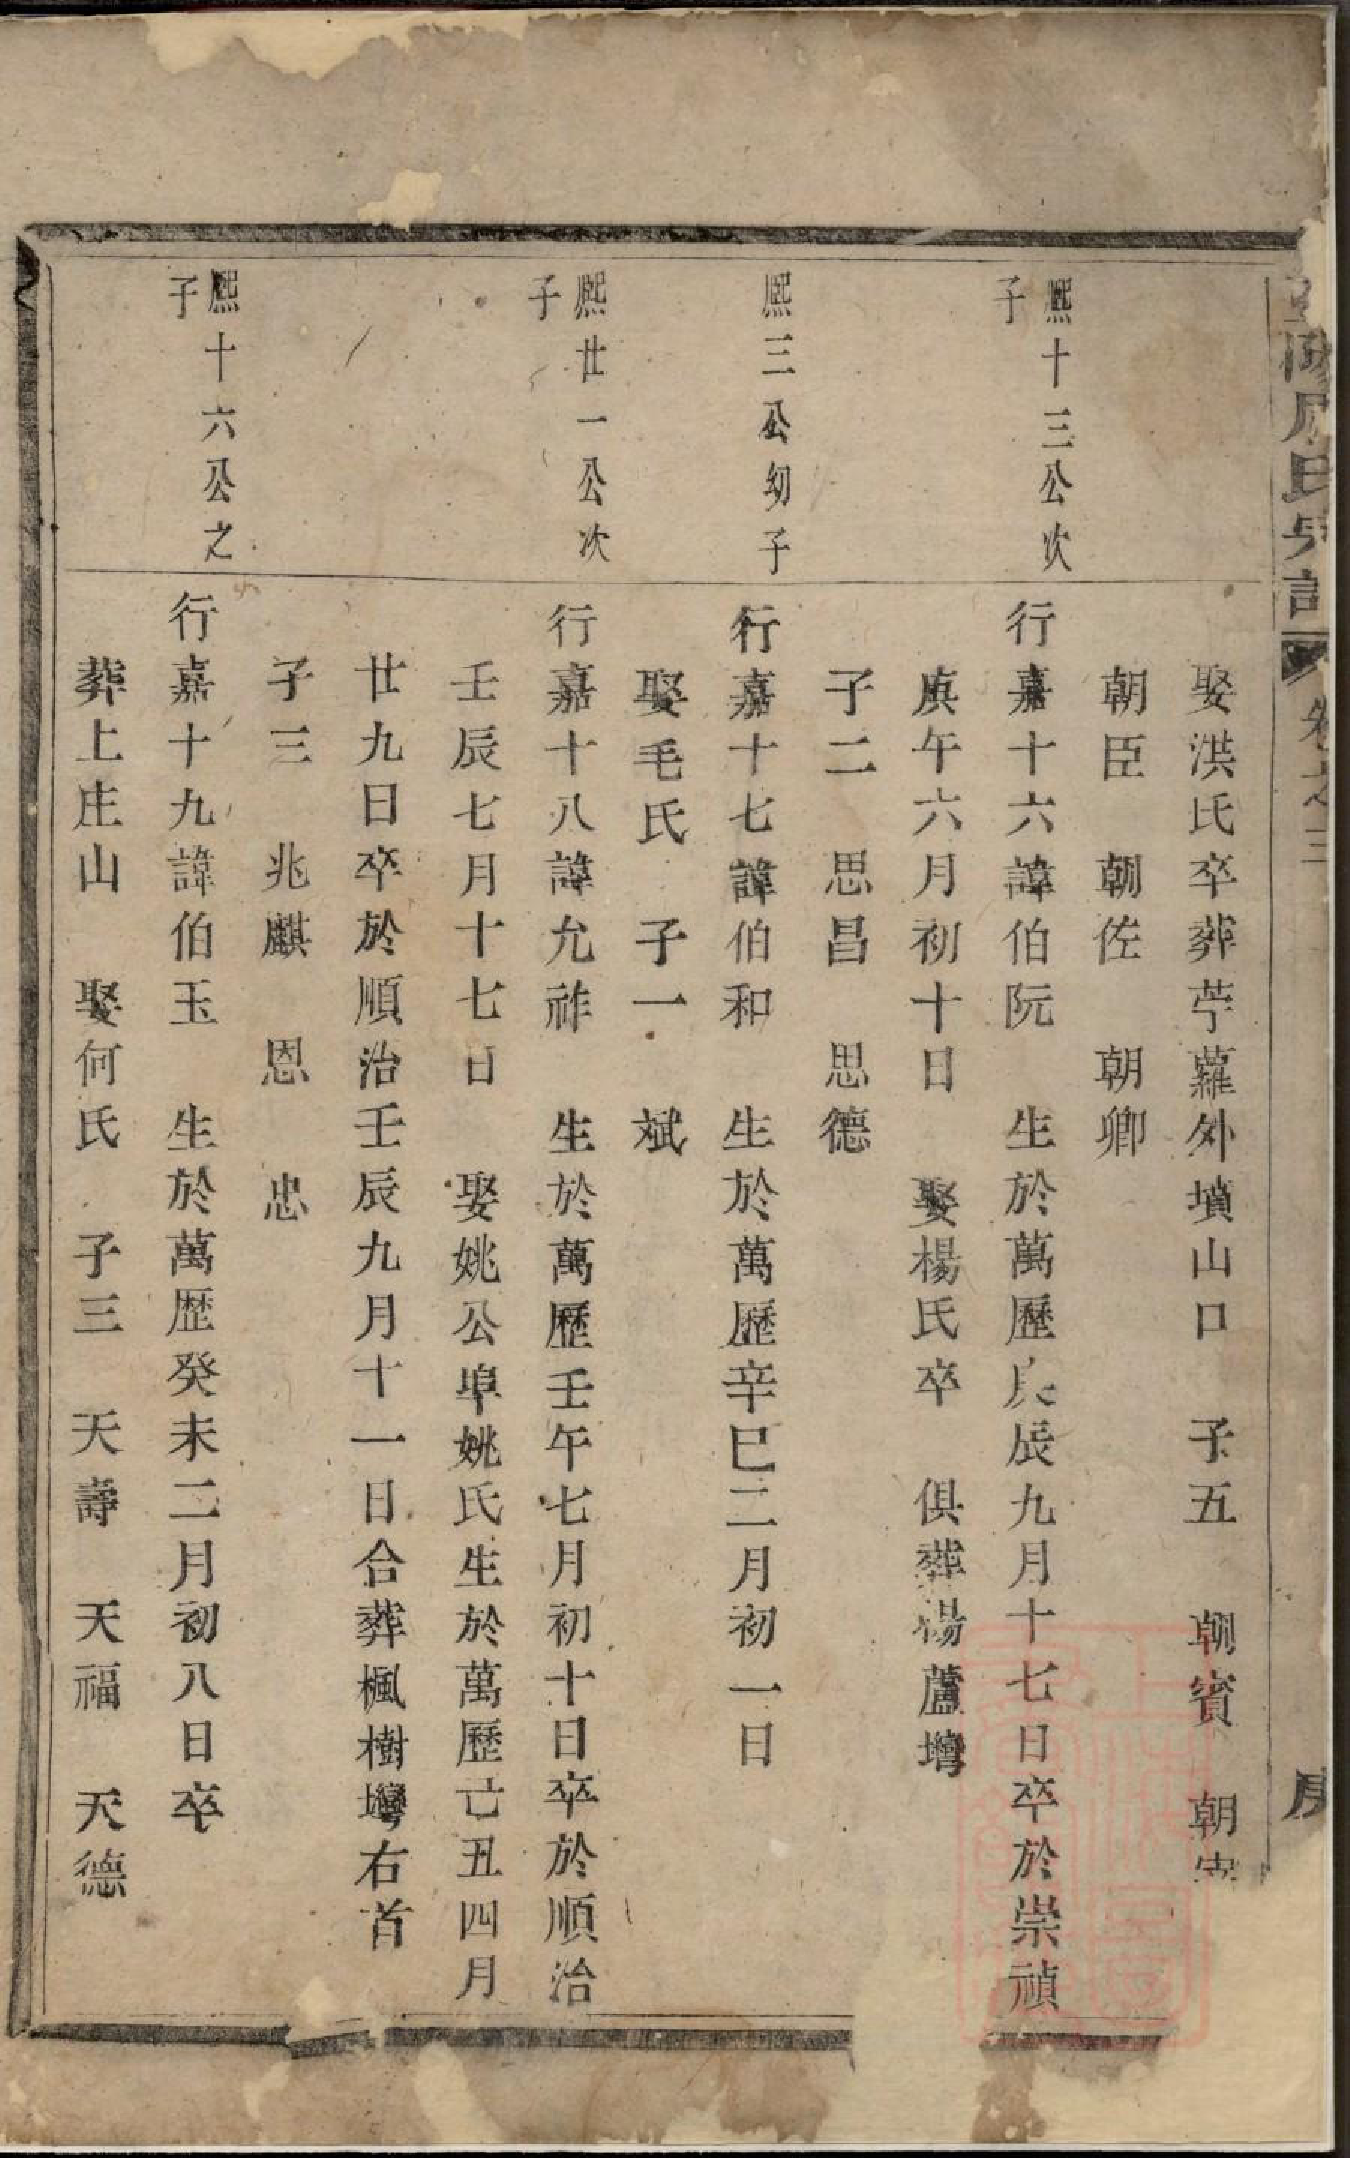 周氏宗譜
卷之三
娶洪氏卒葬苧蘿外墳山口 子五 朝賓 朝
朝臣 朝佐 朝卿
熈十三公次
子
行嘉十六諱伯阮 生於萬歷庚辰九月十七日卒於崇禎
庚午六月初十日 娶楊氏卒 俱葬楊蘆塆
子二 思昌 思德
熈三公幼子
行嘉十七諱伯和 生於萬歷辛巳二月初一日
娶毛氏 子一 斌
熈廿一公次
子
行嘉十八諱允祚 生於萬歷壬午七月初十日卒於順治
壬辰七月十七日 娶姚公埠姚氏生於萬歷亡丑四月
廿九日卒於順治壬辰九月十一日合葬楓樹塆右首
子三 兆麒 恩 忠
熈十六公之
子
行嘉十九諱伯玉 生於萬歷癸未二月初八日卒
葬上庄山 娶何氏 子三 天壽 天福 天德